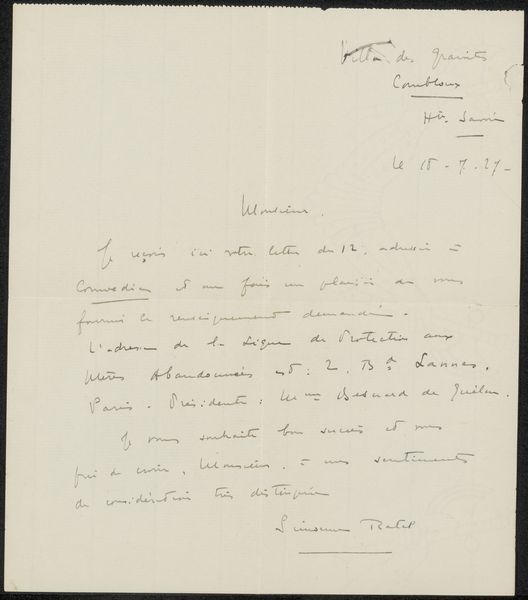 Villa des Granits
Combloux
Hte Savoie
le 18 - 7. 27 -
Monsieur,
Je reçois ici votre lettre du 12, adressée à
et me fais un plaisir de vous
fournir le renseignement demandé.
L'adresse de la Ligue de Protection aux
Mères Abandonnées est : 2, Bd Lannes,
Paris. Présidente : Mme Besnard de Quélen.
Je vous souhaite bon succès et vous
prie de croire, Monsieur, à mes sentiments
de considération très distinguée